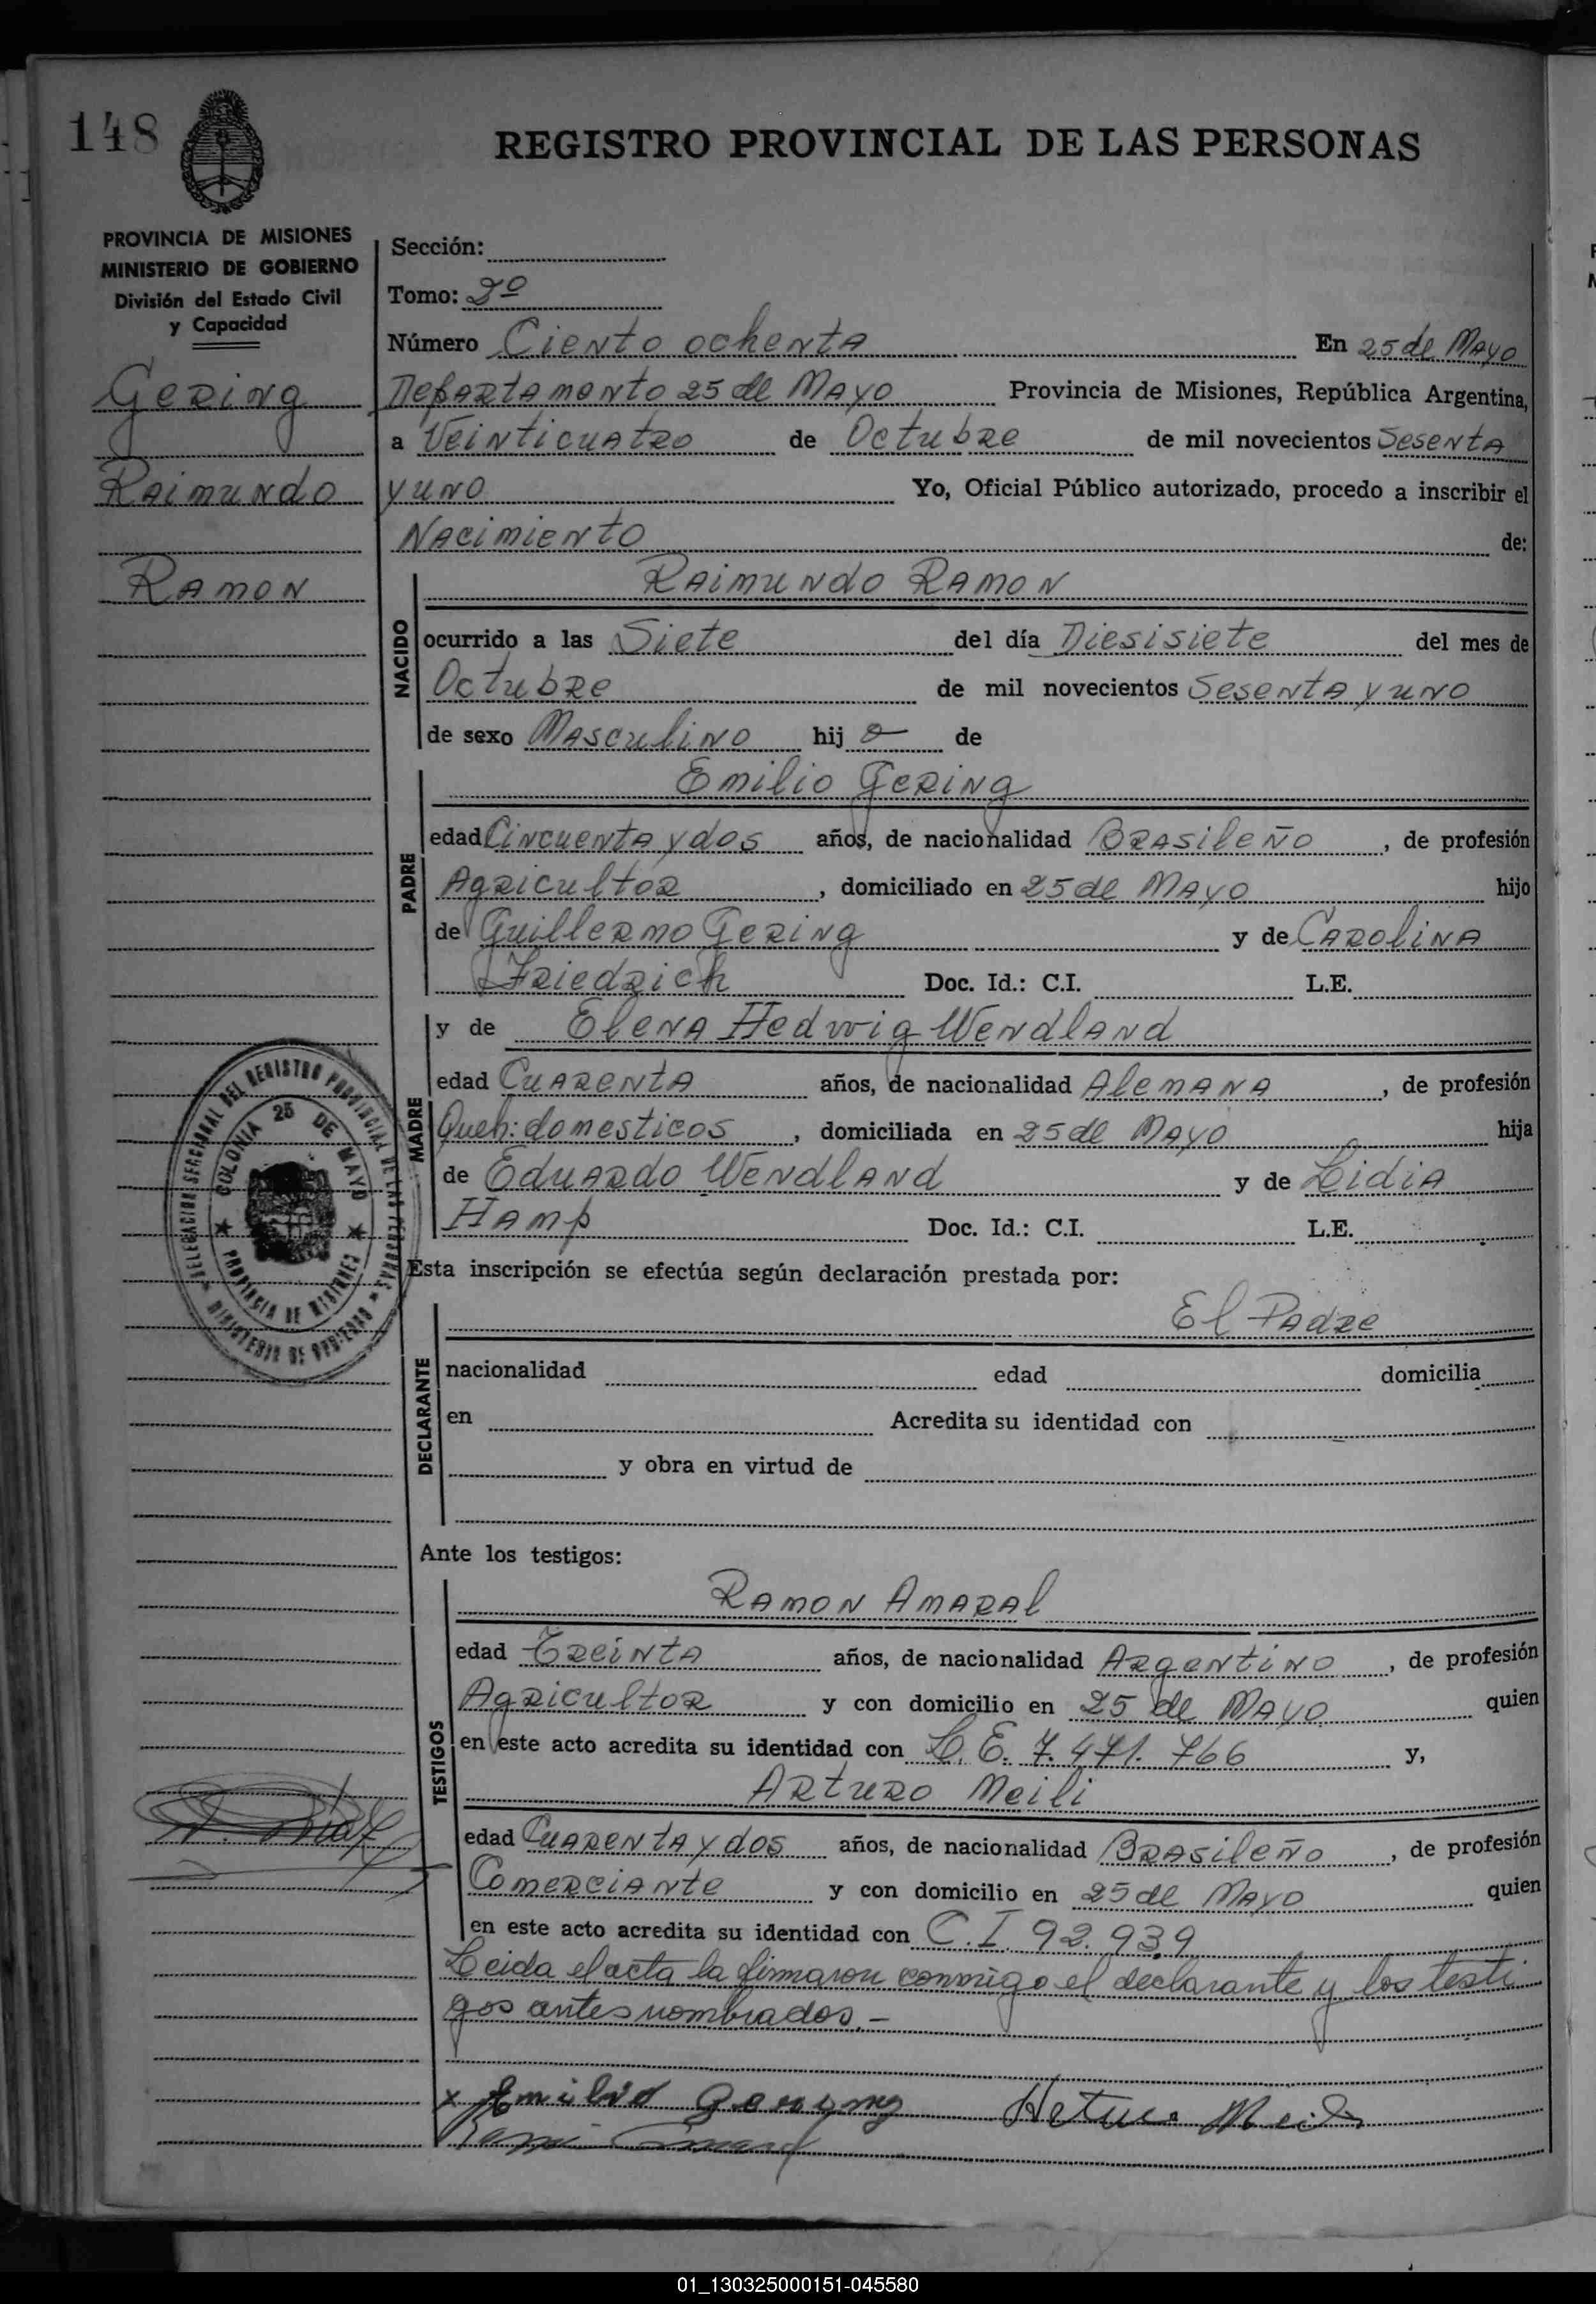 148
REGISTRO PROVINCIAL DE LAS PERSONAS
PROVINCIA DE MISIONES
MINISTERIO DE GOBIERNO
División del Estado Civil
y Capacidad
Gering
Raimundo
Ramon
Sección:
Tomo: 2º
Número Ciento ochenta En 25 de Mayo
Departamento 25 de Mayo Provincia de Misiones, República Argentina,
a Veinticuatro de Octubre de mil novecientos Sesenta
y uno Yo, Oficial Público autorizado, procedo a inscribir el
Nacimiento de:
NACIDO
Raimundo Ramon
ocurrido a las Siete del día Diesisiete del mes de
Octubre de mil novecientos Sesenta y uno
de sexo Masculino hij o de
PADRE
Emilio Gering
edad Cincuenta y dos años, de nacionalidad Brasileño, de profesión
Agricultor, domiciliado en 25 de Mayo hijo
de Guillermo Gering y de Carolina
Friedrich Doc. Id.: C.I. L.E.
MADRE
y de Elena Hedwig Wendland
edad Cuarenta años, de nacionalidad Alemana, de profesión
Queh: domesticos, domiciliada en 25 de Mayo hija
de Eduardo Wendland y de Lidia
Hamp Doc. Id.: C.I. L.E.
DELEGACION SECCIONAL DEL REGISTRO PROVINCIAL DE LAS PERSONAS
MINISTERIO DE GOBIERNO
COLONIA 25 DE MAYO
PROVINCIA DE MISIONES
Esta inscripción se efectúa según declaración prestada por:
DECLARANTE
El Padre
nacionalidad edad domicilia
en Acredita su identidad con
y obra en virtud de
Ante los testigos:
TESTIGOS
Ramon Amaral
edad Treinta años, de nacionalidad Argentino, de profesión
Agricultor y con domicilio en 25 de Mayo quien
en este acto acredita su identidad con L.E. 7.471.766 y,
Arturo Meili
edad Cuarenta y dos años, de nacionalidad Brasileño, de profesión
Comerciante y con domicilio en 25 de Mayo quien
en este acto acredita su identidad con C.I. 92.939
Leida el acta la firmaron conmigo el declarante y los testi
gos antes nombrados.-
x Emilio Gering Arturo Meili
01_130325000151-045580